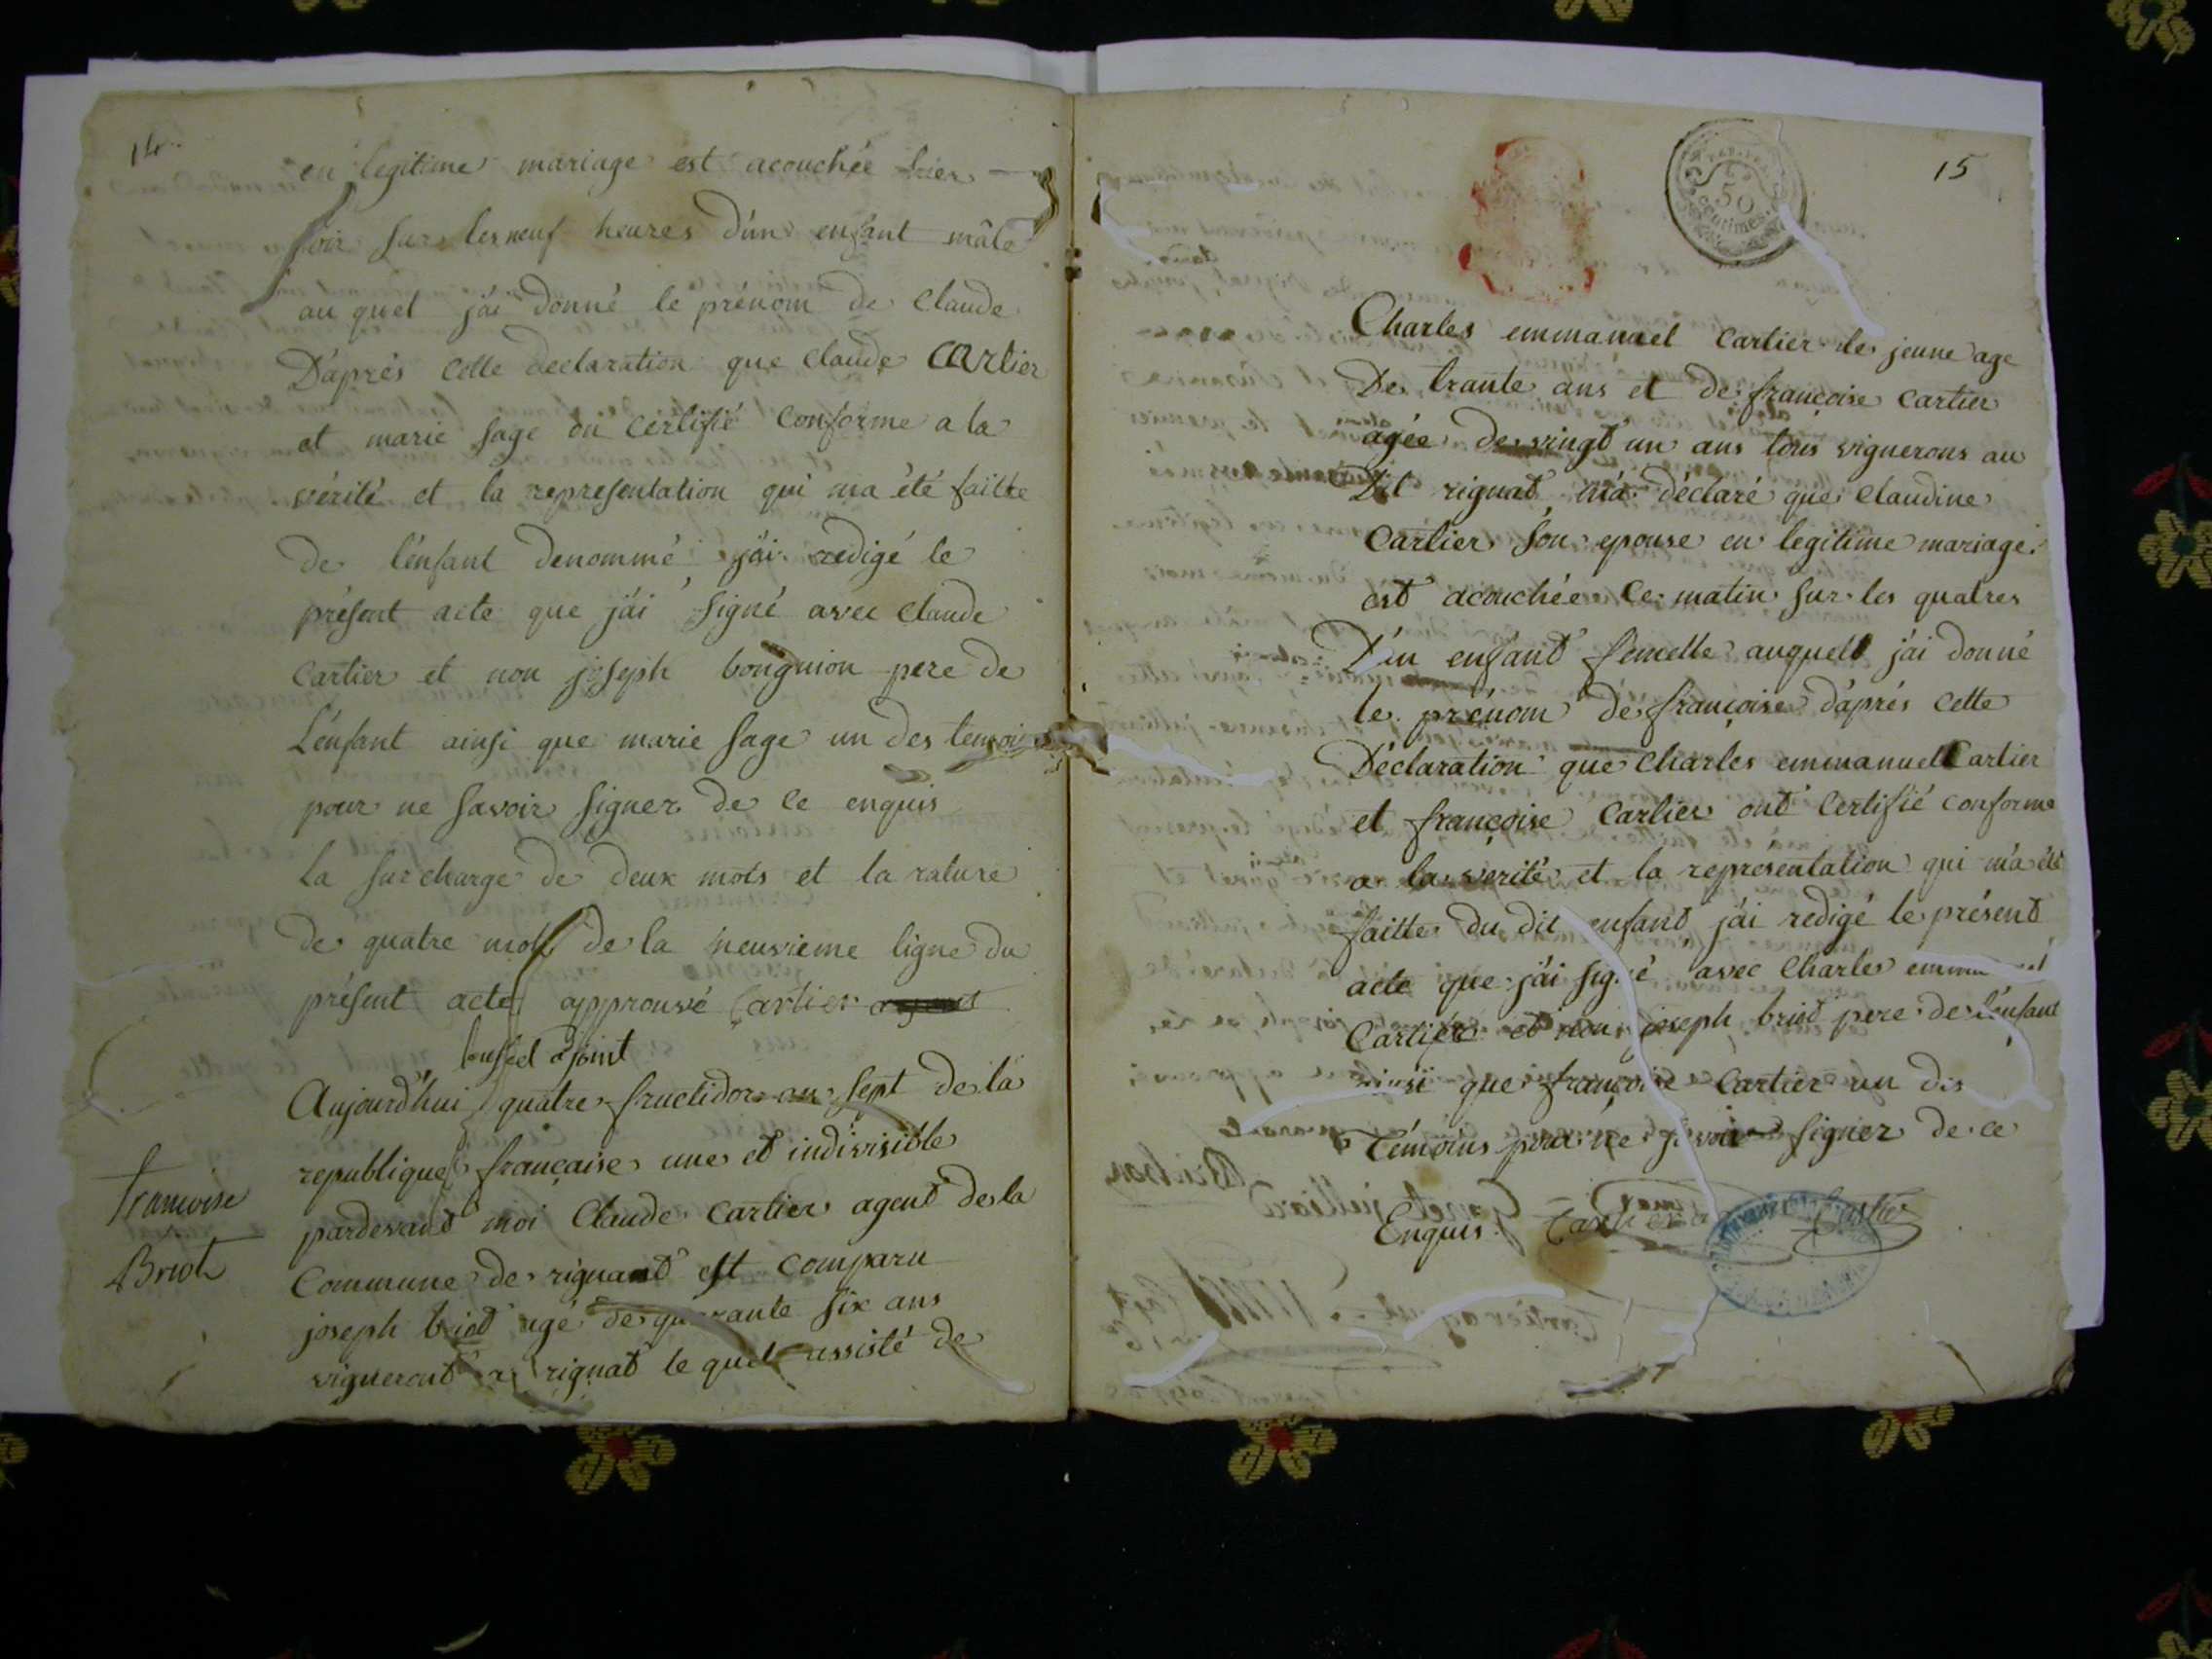 14
en legitime mariage est acouchée hier
soir sur les neuf heures d'un enfant mâle
au quel j'ai donné le prénom de Claude
D'après cette declaration que Claude Cartier
et marie sage on certifié conforme a la
vérité et la representation qui ma été faitte
de l'enfant denommé j'ai redigé le
présent acte que j'ai signé avec Claude
Cartier et non joseph bonguion pere de
L'enfant ainsi que marie sage un des temoin
pour ne savoir signer de ce enquis
la surcharge de deux mots et la rature
de quatre mots de la neuvieme ligne du
présent acte approuvé Cartier agent
ajoint
Aujourd'hui quatre fructidor an sept de la
republique française une et indivisible
pardevant moi Claude Cartier agent de la
Commune de rignat est comparu
joseph briot agé de quarante six ans
vigneront a rignat le quel assisté de
francoise
Briot
15
50
centimes
Charles emmanuel Cartier le jeune age
De trante ans et de françoise Cartier
agée de vingt un ans tous vignerons au
Dit rignat m'a déclaré que Claudine
Cartier son epouse en legitime mariage
est acouchée ce matin sur les quatres
D'un enfant femelle auquell j'ai donné
le prénom de françoise d'aprés cette
Déclaration que Charles emmanuel Cartier
et françoise Cartier ont certifié conforme
a la verité et la representation qui m'a été
faitte du dit enfant j'ai redigé le présent
acte que j'ai signé avec Charles emmanuel
Cartier et non joseph briot pere de l'enfant
ainsi que françoise Cartier un des
Témoins pour ne savoir signer de ce
Enquis. Cartier Cartier